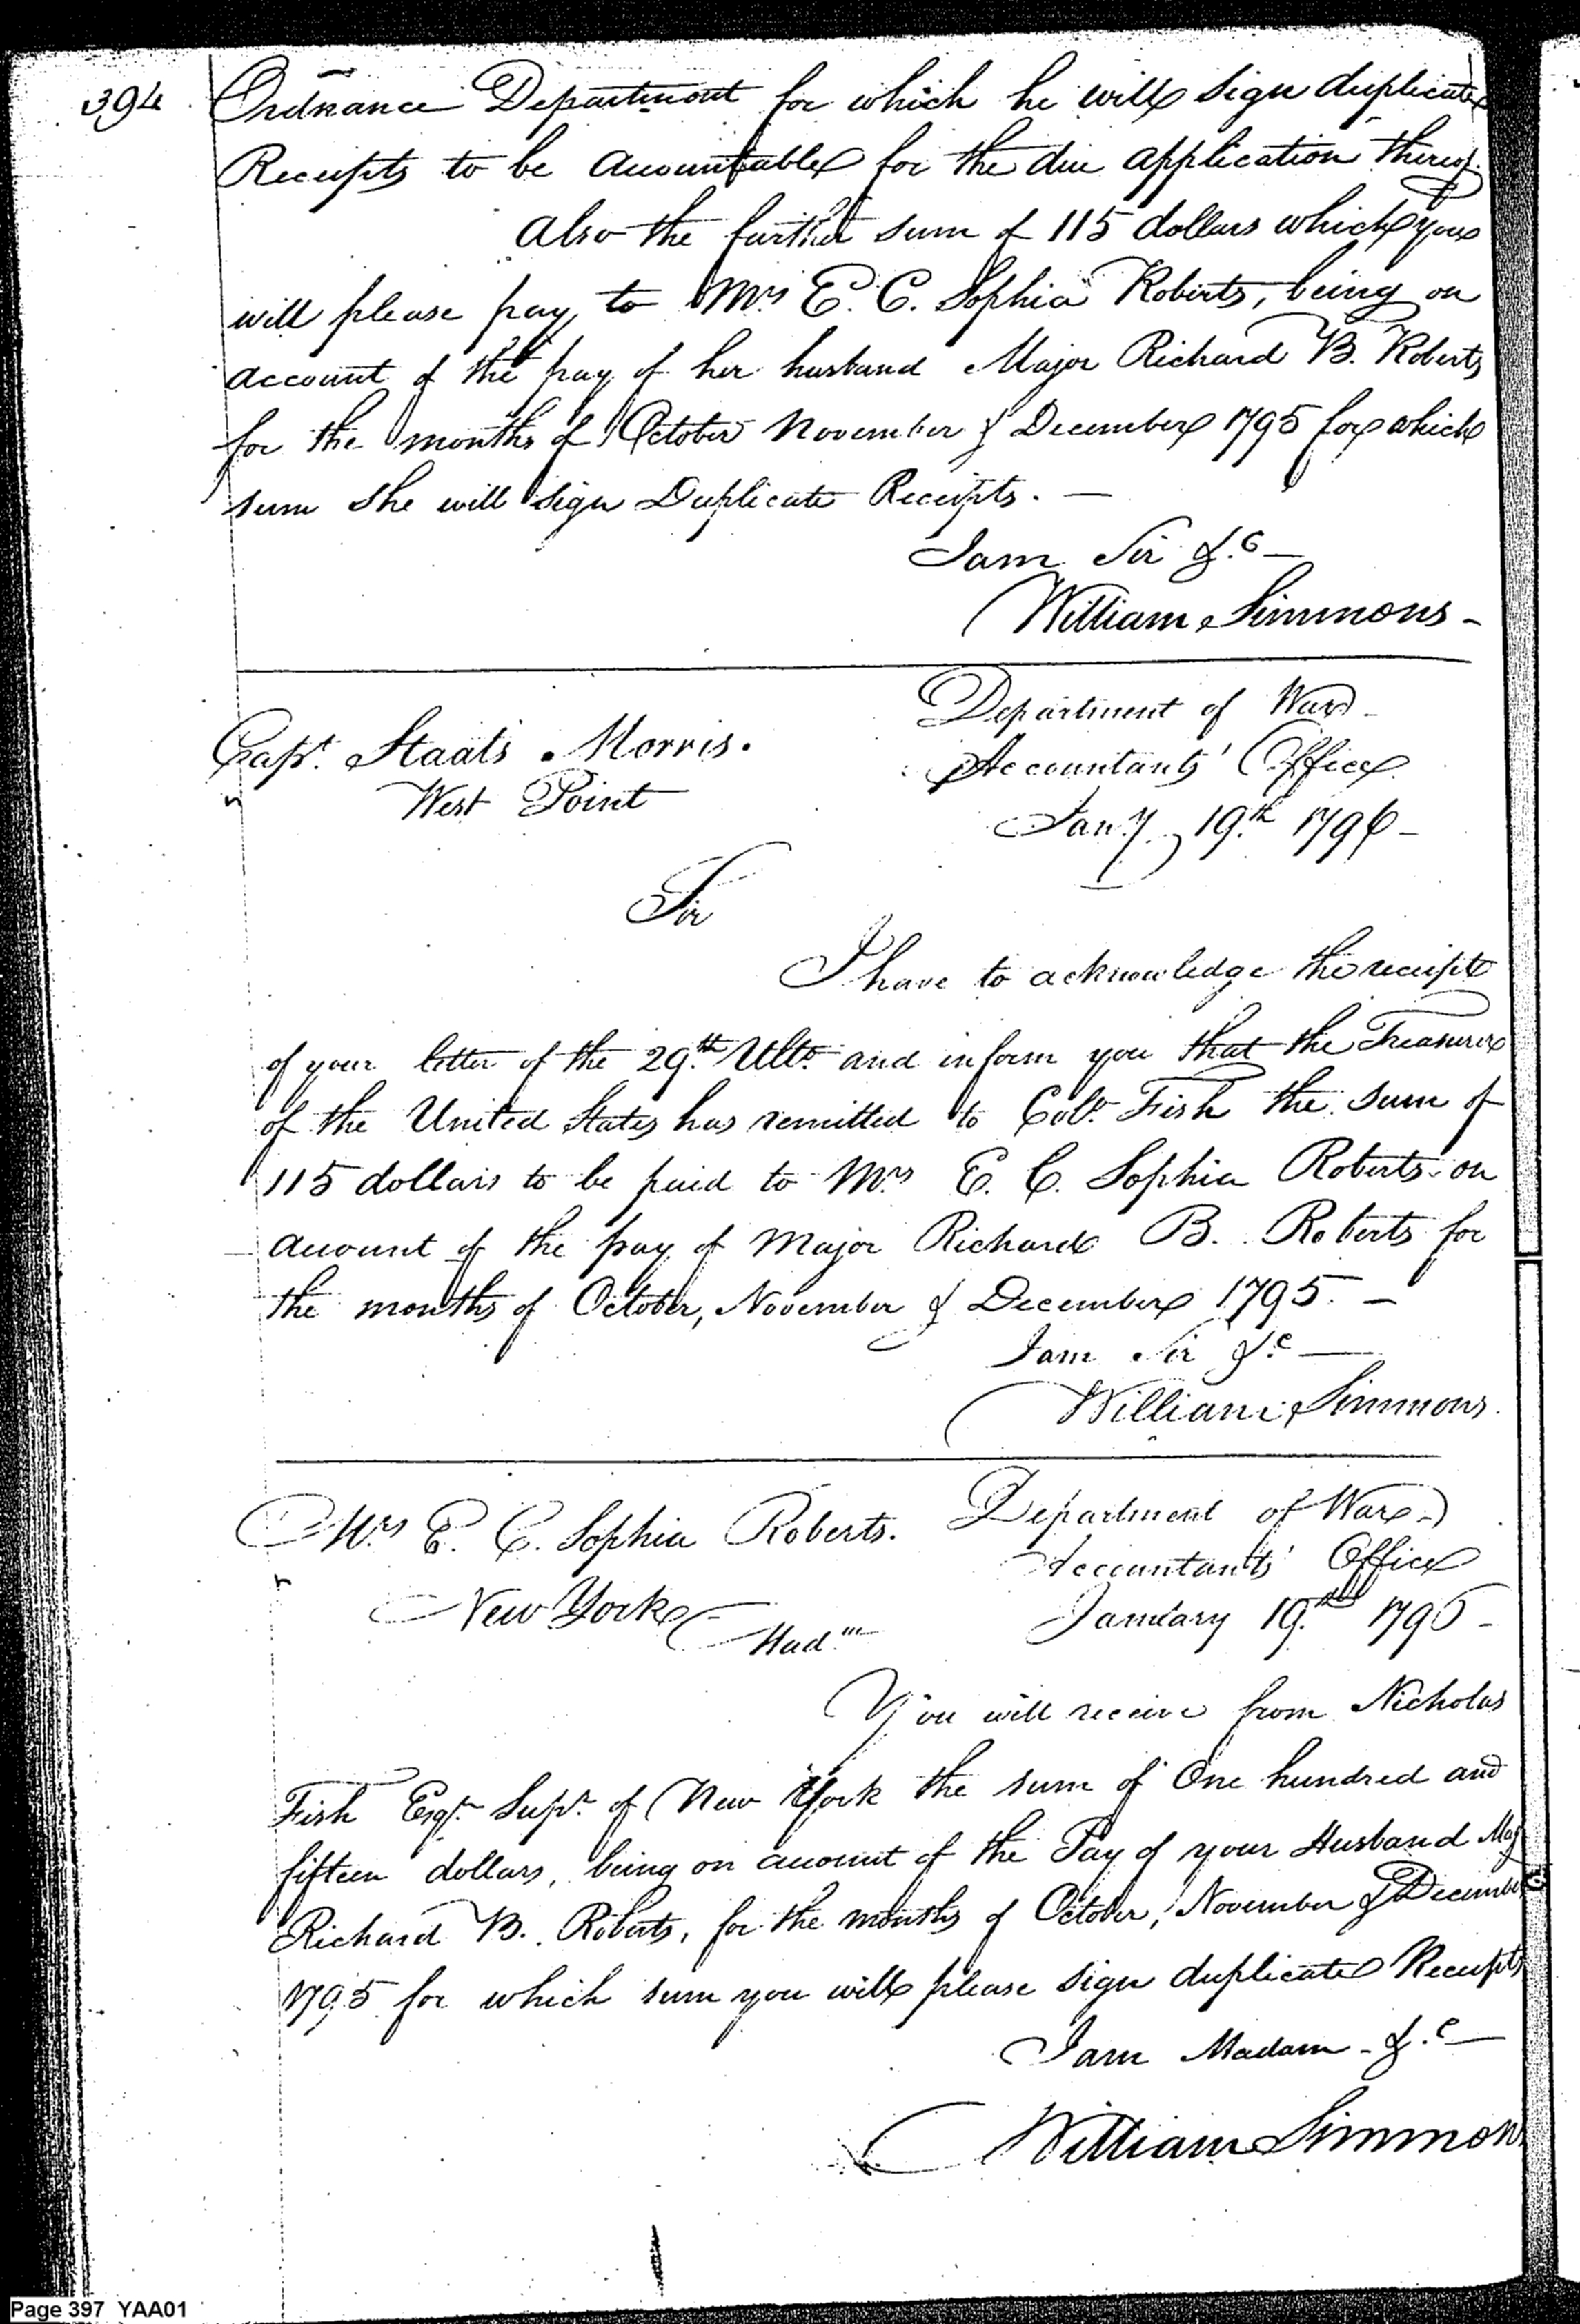 394
Ordnance Department for which he will sign duplicate
Receipts to be accountable for the due application thereof.
Also the further sum of 115 dollars which you
will please pay to Mrs E. C. Sophia Roberts, being on
account of the pay of her husband Major Richard B. Roberts
for the months of October November & December 1795 for which
sum she will sign Duplicate Receipts. —
I am Sir &.c —
William Simmons -
Capt. Staats Morris.
West Point
Department of War
Accountants' Office
Jany. 19.th 1796 -
Sir
I have to acknowledge the receipt
of your letter of the 29.th Ulto. and inform you that the Treasurer
of the United States has remitted to Colo. Fish the sum of
115 dollars to be paid to Mrs E. C. Sophia Roberts on
account of the pay of Major Richard B. Roberts for
the months of October, November & December 1795. —
I am Sir &.c —
William Simmons.
Mrs E. C. Sophia Roberts.
New York
Department of War
Accountants' Office
January 19.th 1796 -
Mad.m
You will receive from Nicholas
Fish Esqr. Supr. of New York the sum of One hundred and
fifteen dollars, being on account of the Pay of your Husband Maj
Richard B. Roberts, for the months of October, November & December
1795 for which sum you will please sign duplicate Receipts
I am Madam - &.c —
William Simmons
Page 397 YAA01